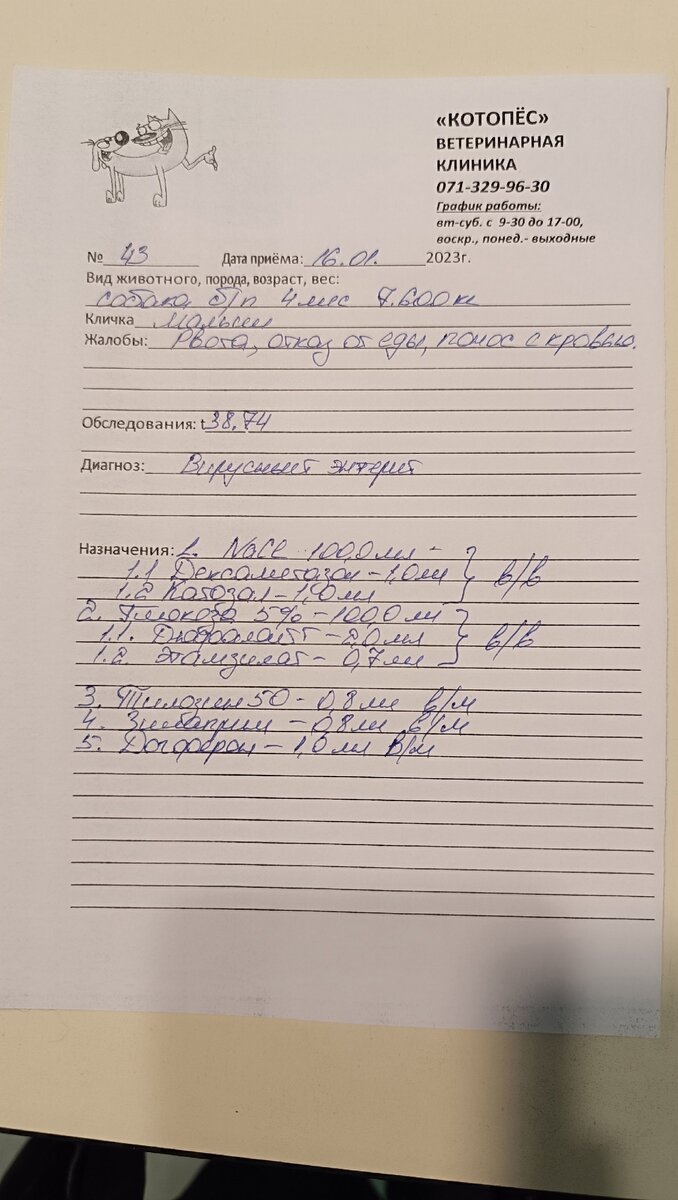 «КОТОПЁС»
ВЕТЕРИНАРНАЯ
КЛИНИКА
071-329-96-30
График работы:
вт-суб. с 9-30 до 17-00,
воскр., понед.- выходные
№ 43 Дата приёма: 16.01. 2023г.
Вид животного, порода, возраст, вес:
собака б/п 4 мес 7.600 кг
Кличка Малыш
Жалобы: Рвота, отказ от еды, понос с кровью.
Обследования: t 38,74
Диагноз: Вирусный энтерит
Назначения: 1. NaCl - 100,0 мл -
1.1 Дексаметазон - 1,0 мл } в/в
1.2 Катозал - 1,0 мл
2. Глюкоза 5% - 100,0 мл
1.1. Дюфалайт - 20 мл } в/в
1.2. Этамзилат - 0,7 мл
3. Тилозин 50 - 0,8 мл в/м
4. - 0,8 мл в/м
5. - 1,0 мл в/м